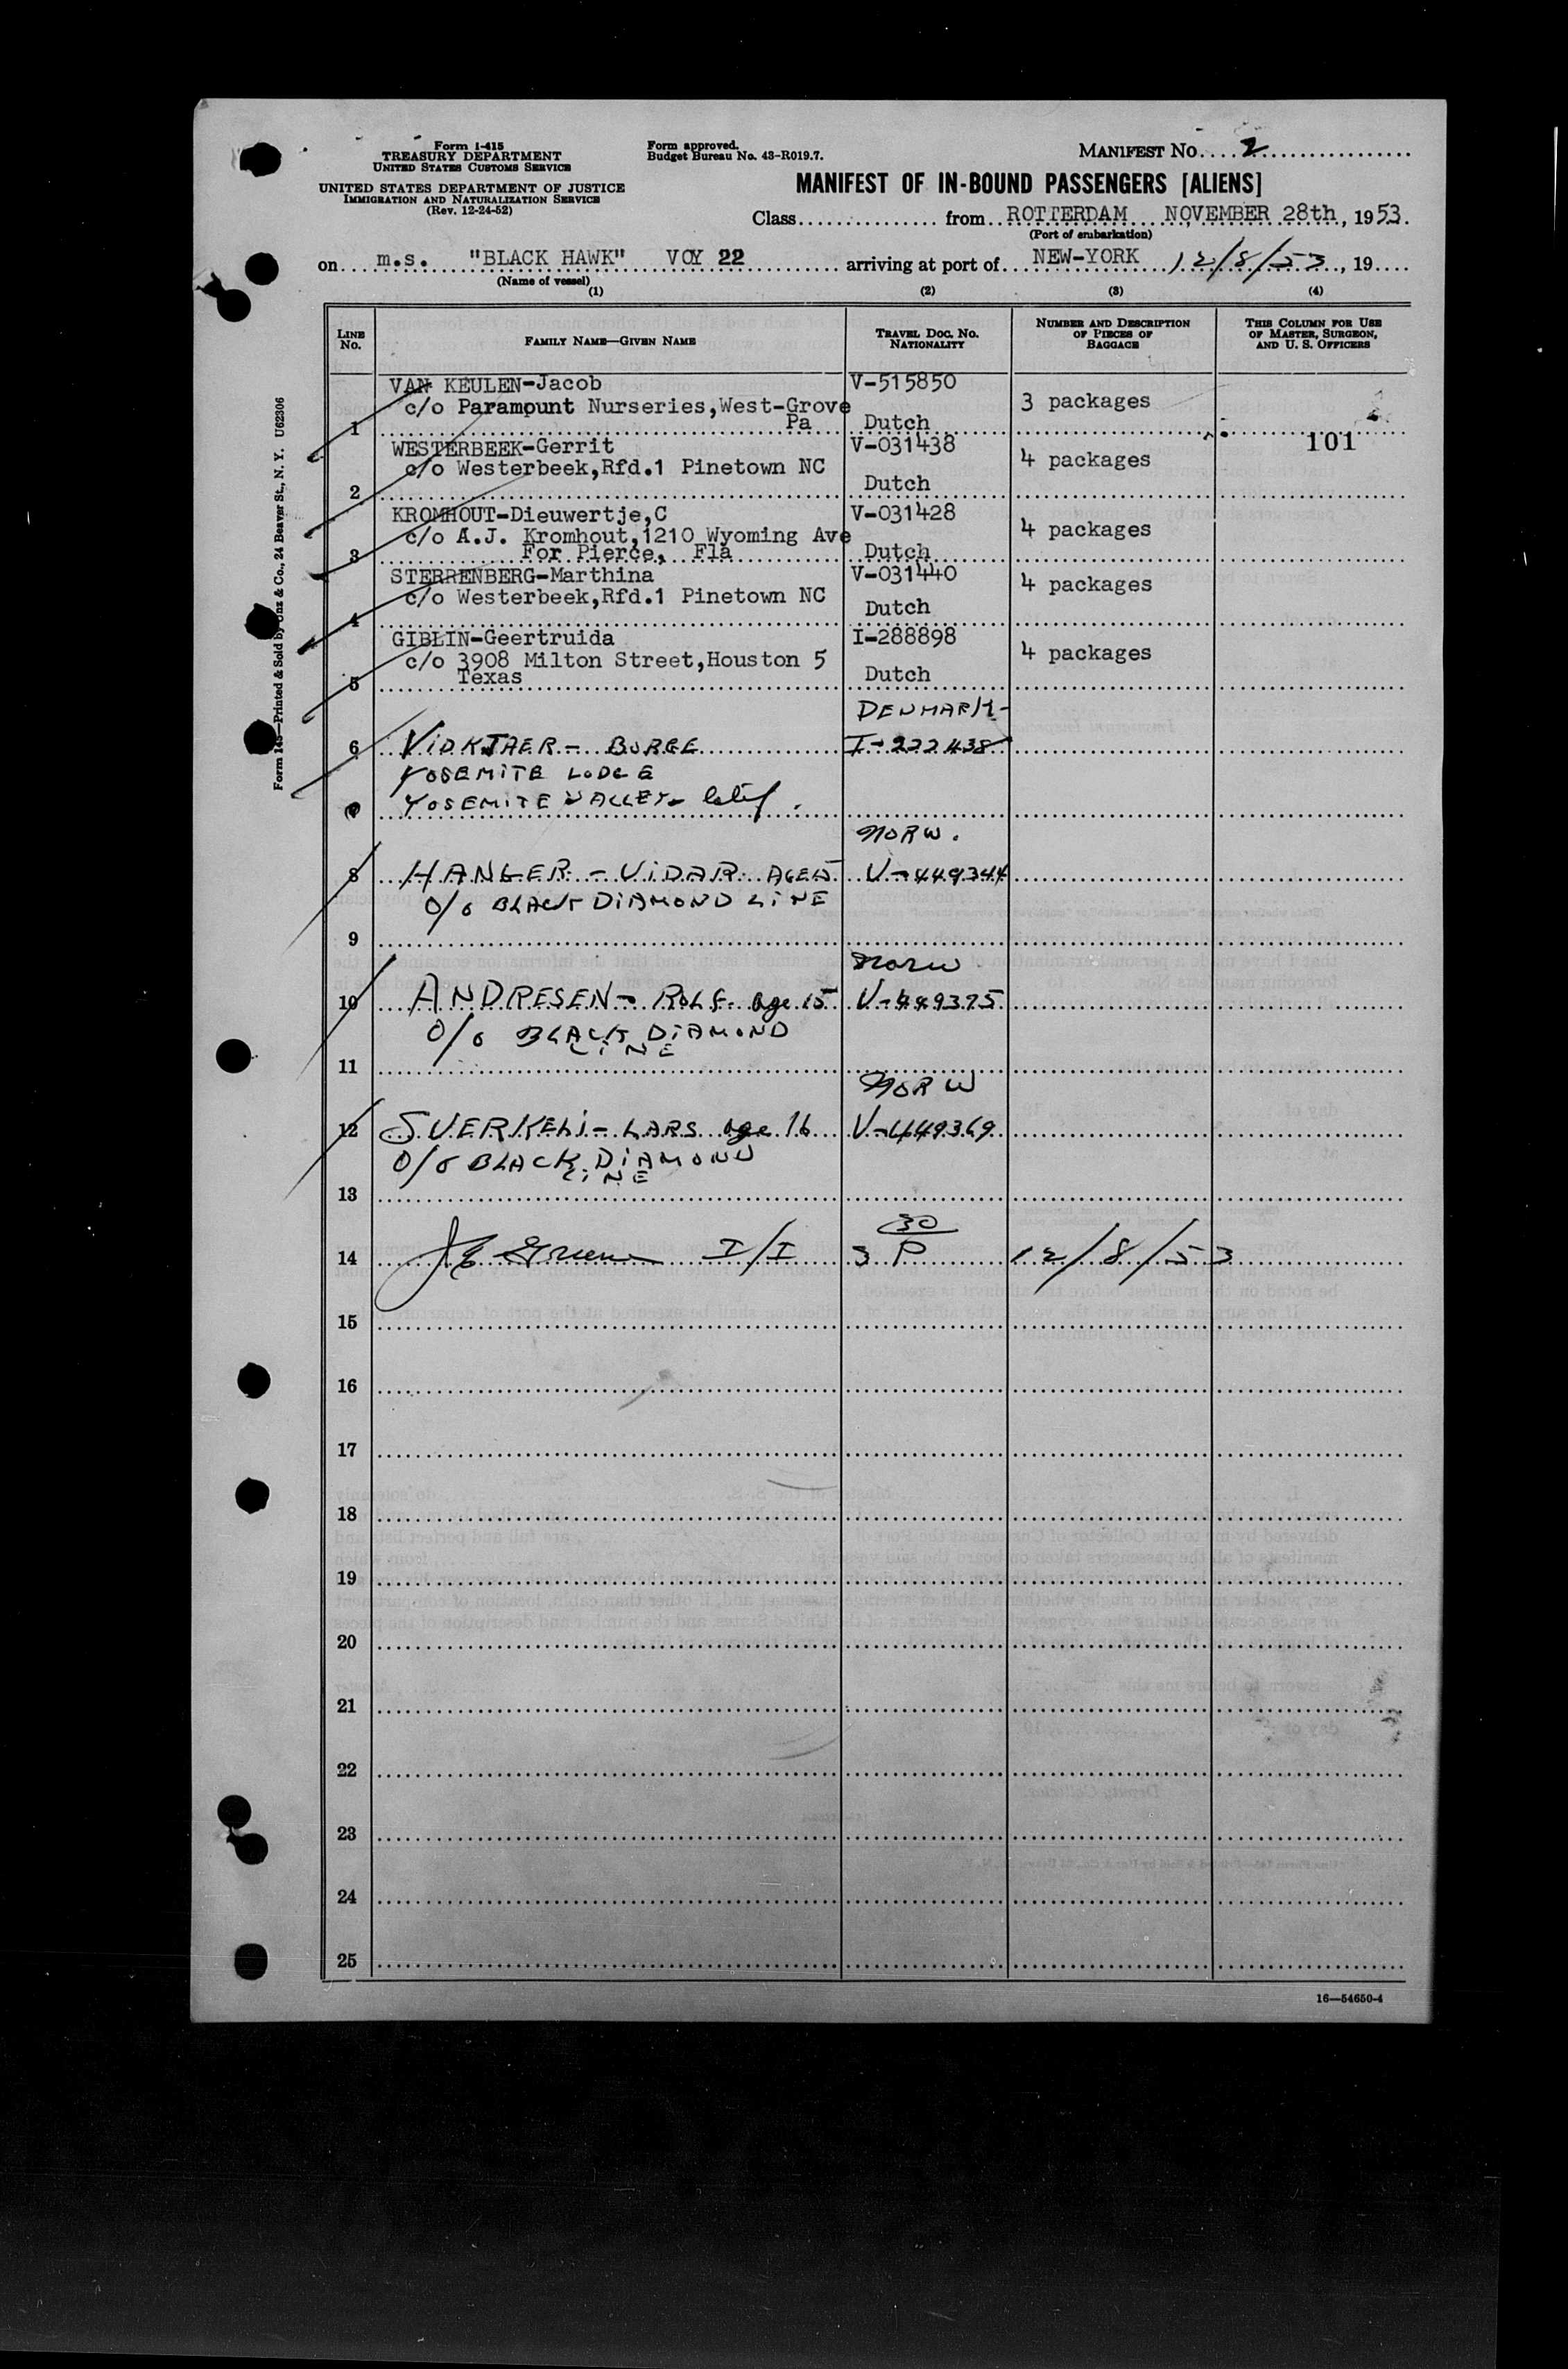 Form I-415
TREASURY DEPARTMENT
UNITED STATES CUSTOMS SERVICE
UNITED STATES DEPARTMENT OF JUSTICE
IMMIGRATION AND NATURALIZATION SERVICE
(Rev. 12-24-52)
Form approved.
Budget Bureau No. 43-R019.7.
MANIFEST No. 2
MANIFEST OF IN-BOUND PASSENGERS [ALIENS]
Class from ROTTERDAM NOVEMBER 28th, 1953.
(Port of embarkation)
on m.s. "BLACK HAWK" VOY 22 arriving at port of NEW-YORK 12/8/53, 19
(Name of vessel)
(1) (2) (3) (4)
LINE No. FAMILY NAME—GIVEN NAME TRAVEL DOC. NO. NATIONALITY NUMBER AND DESCRIPTION OF PIECES OF BAGGAGE THIS COLUMN FOR USE OF MASTER, SURGEON, AND U. S. OFFICERS
VAN KEULEN-Jacob V-515850
c/o Paramount Nurseries,West-Grove 3 packages
1 Pa Dutch
101
WESTERBEEK-Gerrit V-031438
c/o Westerbeek,Rfd.1 Pinetown NC 4 packages
2 Dutch
KROMHOUT-Dieuwertje,C V-031428
c/o A.J. Kromhout,1210 Wyoming Ave 4 packages
3 For Pierce, Fla Dutch
STERRENBERG-Marthina V-031440
c/o Westerbeek,Rfd.1 Pinetown NC 4 packages
4 Dutch
GIBLIN-Geertruida I-288898
c/o 3908 Milton Street,Houston 5 4 packages
5 Texas Dutch
DENMARK-
6 VIDKJAER - BORGE I-222438
YOSEMITE LODGE
YOSEMITE VALLEY
NORW.
8 HANGER - VIDAR AGE 15 V-449344
O/O BLACK DIAMOND LINE
9
NORW
10 ANDRESEN - ROLF. age 15 V-449375
O/O BLACK DIAMOND
LINE
11
NORW
12 SVERKELI - LARS age 16 V-449369
O/O BLACK DIAMOND
LINE
13
30
14 I/I 3 P 12/8/53
15
16
17
18
19
20
21
22
23
24
25
16—54650-4
Form 145—Printed & Sold by Unz & Co., 24 Beaver St., N. Y. U62306